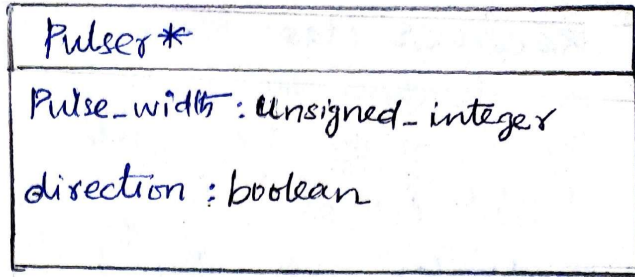 Pulser*
Pulse_width : unsigned_integer
direction : boolean